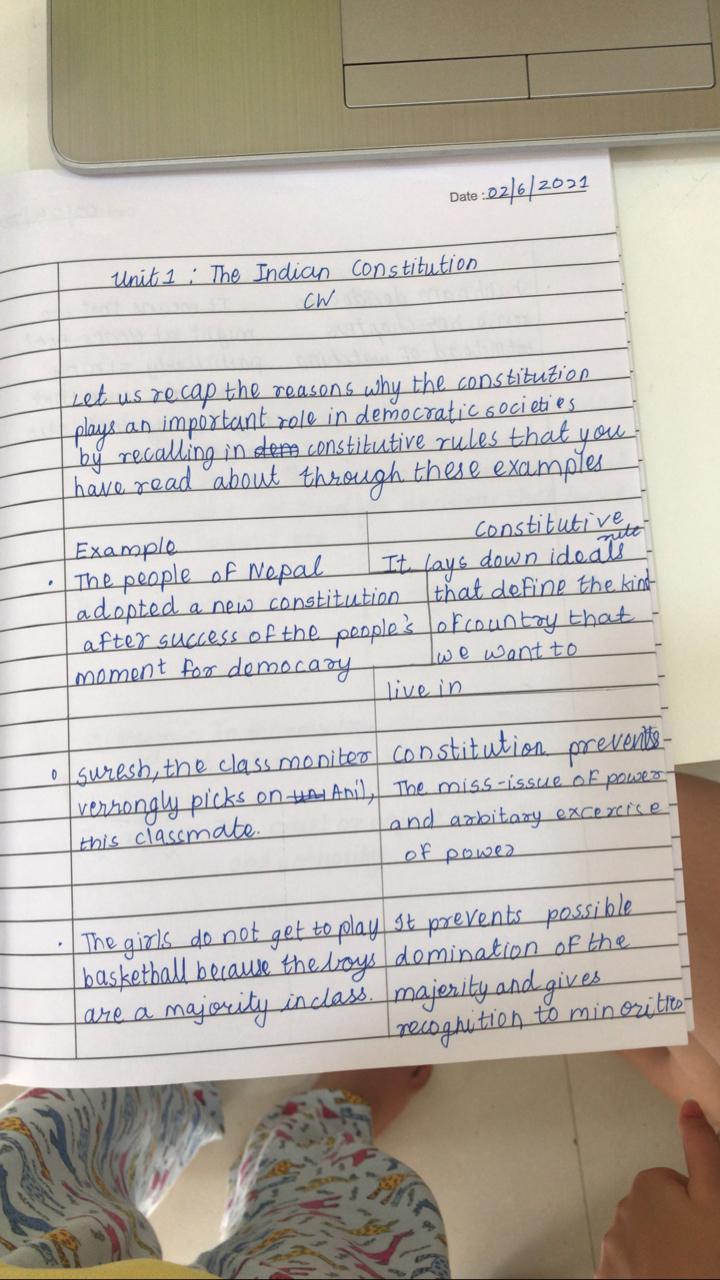 Date : 02/6/2021
Unit 1 : The Indian Constitution
CW
Let us recap the reasons why the constitution
plays an important role in democratic societies
by recalling in dem constitutive rules that you
have read about through these examples
Example
Constitutive rule
• The people of Nepal
adopted a new constitution
after success of the people's
moment for democary
It lays down ideals
that define the kind
of country that
we want to
live in
• Suresh, the class moniter
verrongly picks on Anil,
this classmate.
Constitution prevents
The miss-issue of power
and arbitary excercise
of power
• The girls do not get to play
basketball because the boys
are a majority in class.
It prevents possible
domination of the
majerity and gives
recoghition to minorities